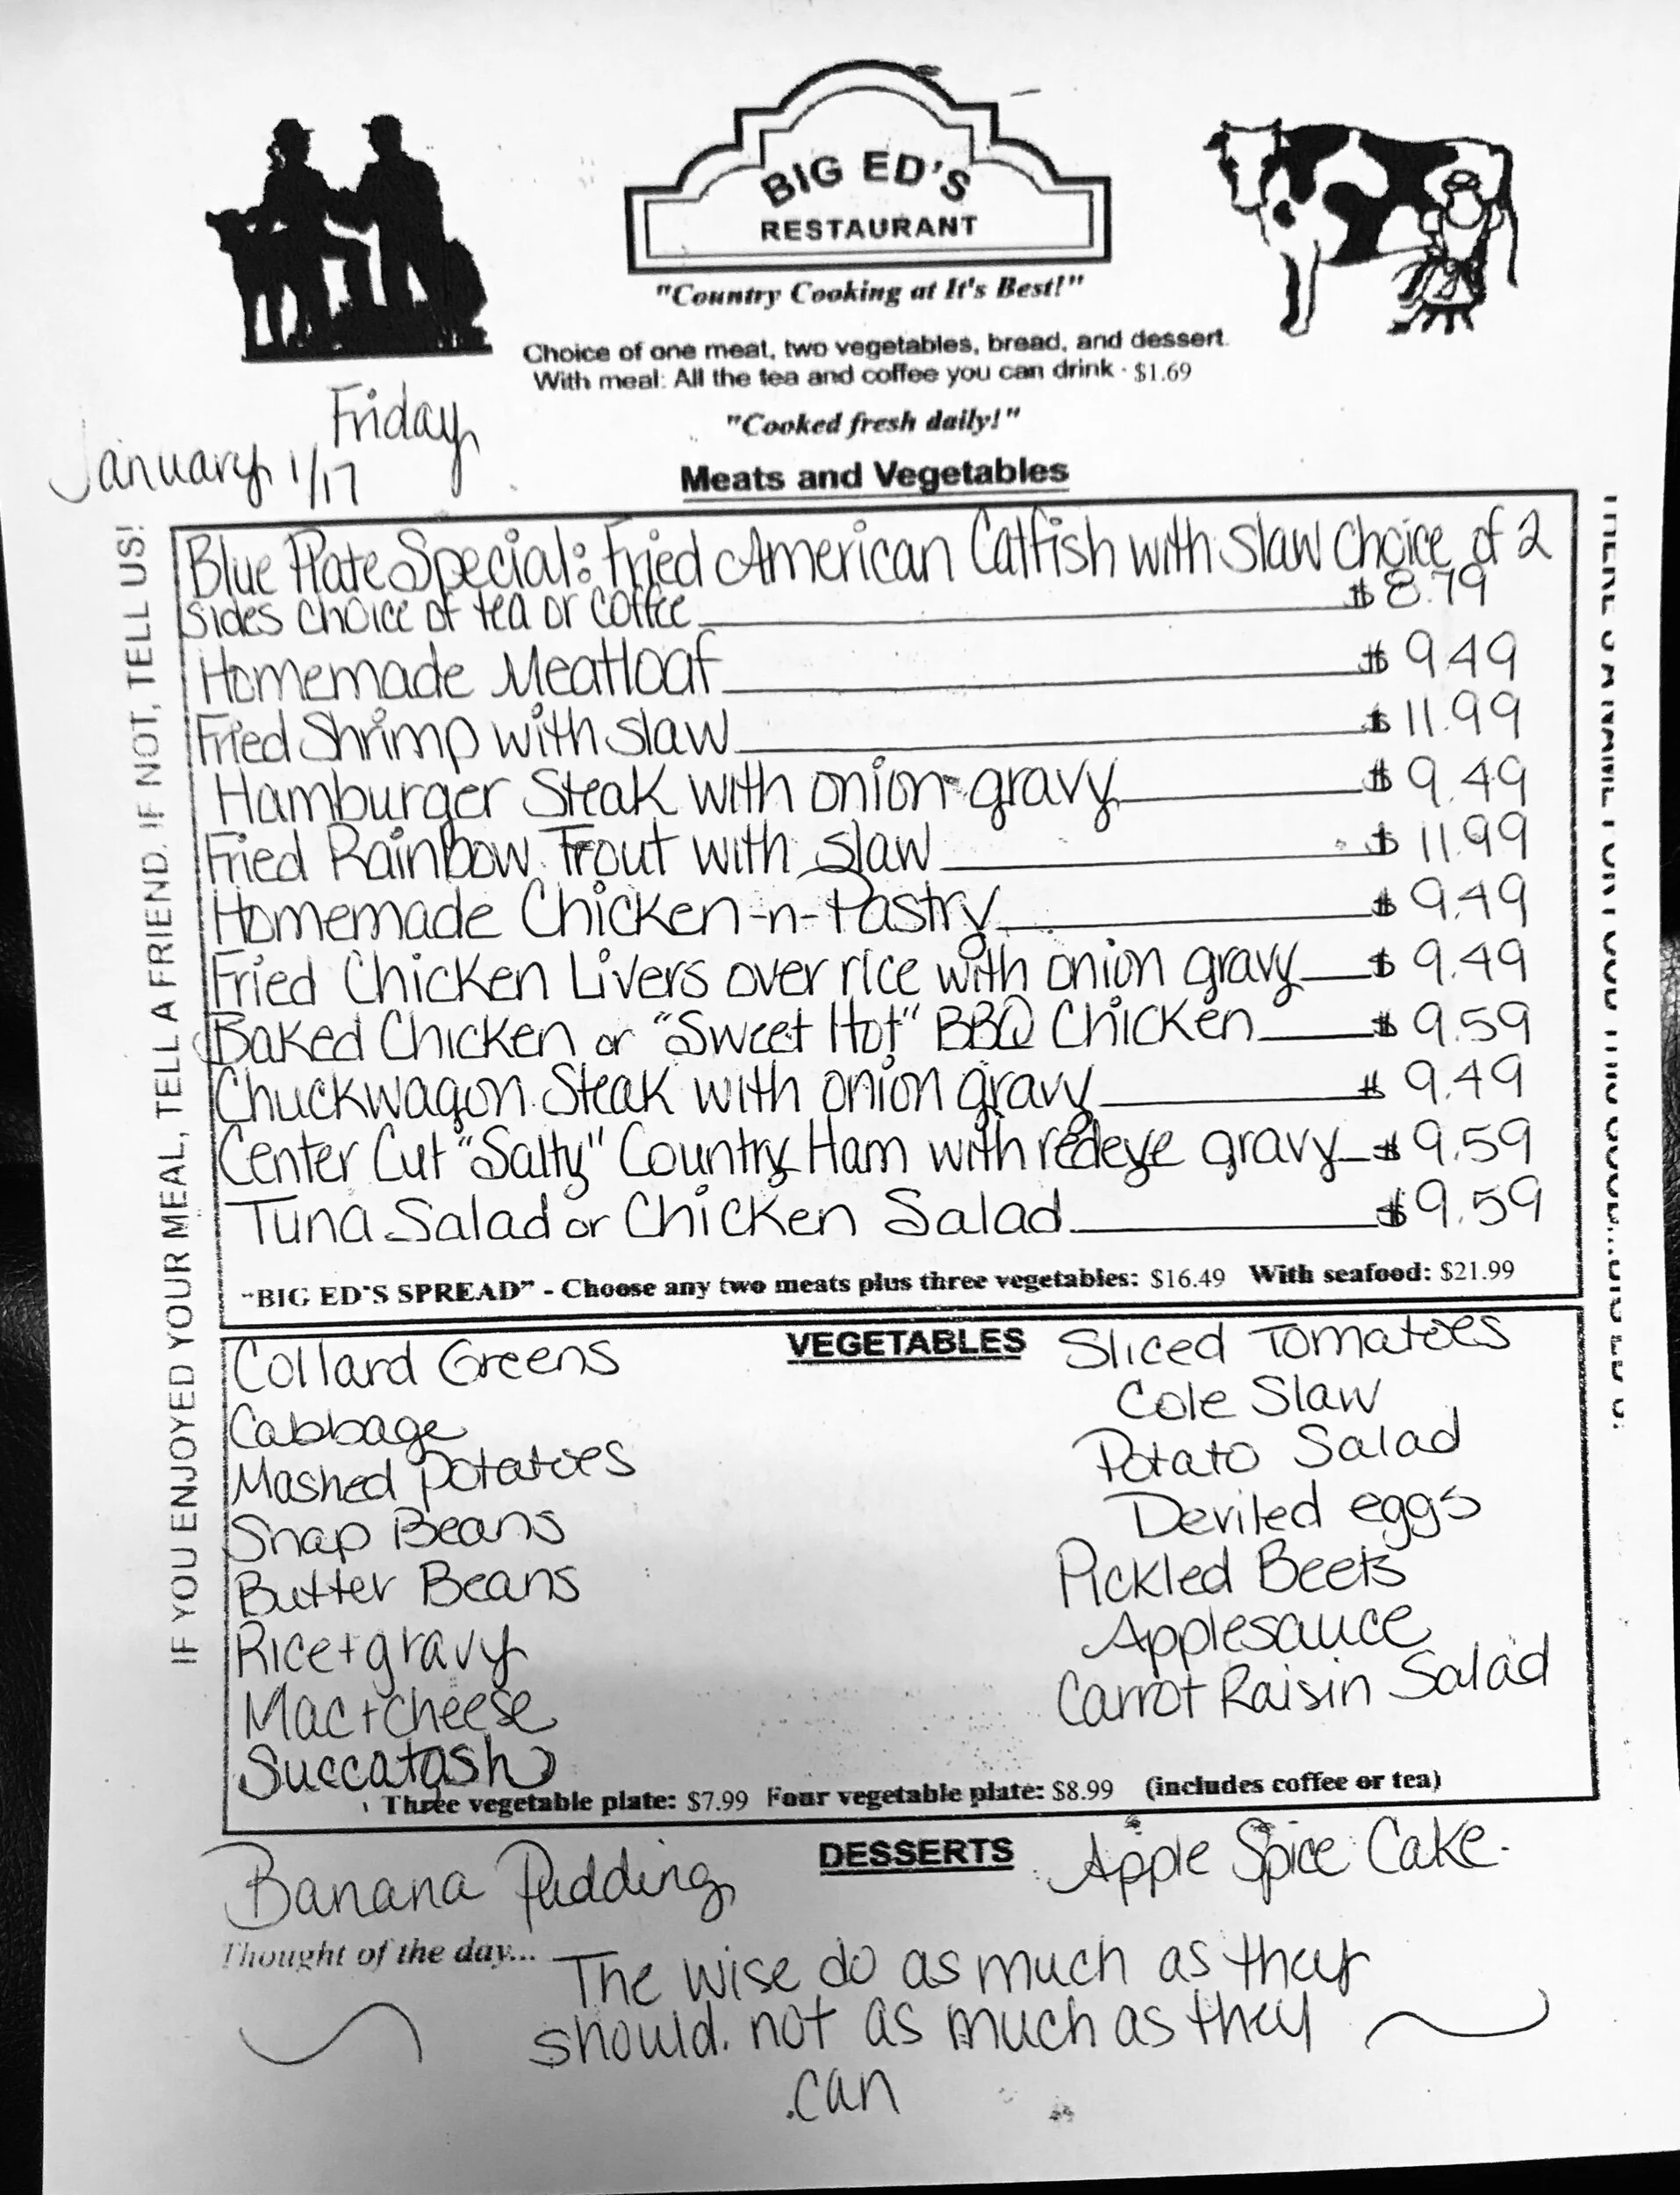 BIG ED'S
RESTAURANT
"Country Cooking at It's Best!"
Choice of one meat, two vegetables, bread, and dessert.
With meal: All the tea and coffee you can drink - $1.69
"Cooked fresh daily!"
Friday
January 1/17
Meats and Vegetables
IF YOU ENJOYED YOUR MEAL, TELL A FRIEND. IF NOT, TELL US!
Blue Plate Special: Fried American Catfish with slaw choice of 2
sides choice of tea or coffee $8.79
Homemade Meatloaf $9.49
Fried Shrimp with slaw $11.99
Hamburger Steak with onion gravy $9.49
Fried Rainbow Trout with slaw $11.99
Homemade Chicken-n-Pastry $9.49
Fried Chicken Livers over rice with onion gravy $9.49
Baked Chicken or "Sweet Hot" BBQ Chicken $9.59
Chuckwagon Steak with onion gravy $9.49
Center Cut "Salty" Country Ham with redeye gravy $9.59
Tuna Salad or Chicken Salad $9.59
"BIG ED'S SPREAD" - Choose any two meats plus three vegetables: $16.49 With seafood: $21.99
VEGETABLES
Collard Greens
Cabbage
Mashed Potatoes
Snap Beans
Butter Beans
Rice+gravy
Mac+cheese
Succatash
Sliced Tomatoes
Cole Slaw
Potato Salad
Deviled eggs
Pickled Beets
Applesauce
Carrot Raisin Salad
Three vegetable plate: $7.99 Four vegetable plate: $8.99 (includes coffee or tea)
DESSERTS
Banana Pudding
Apple Spice Cake.
Thought of the day... The wise do as much as they
should. not as much as they
can